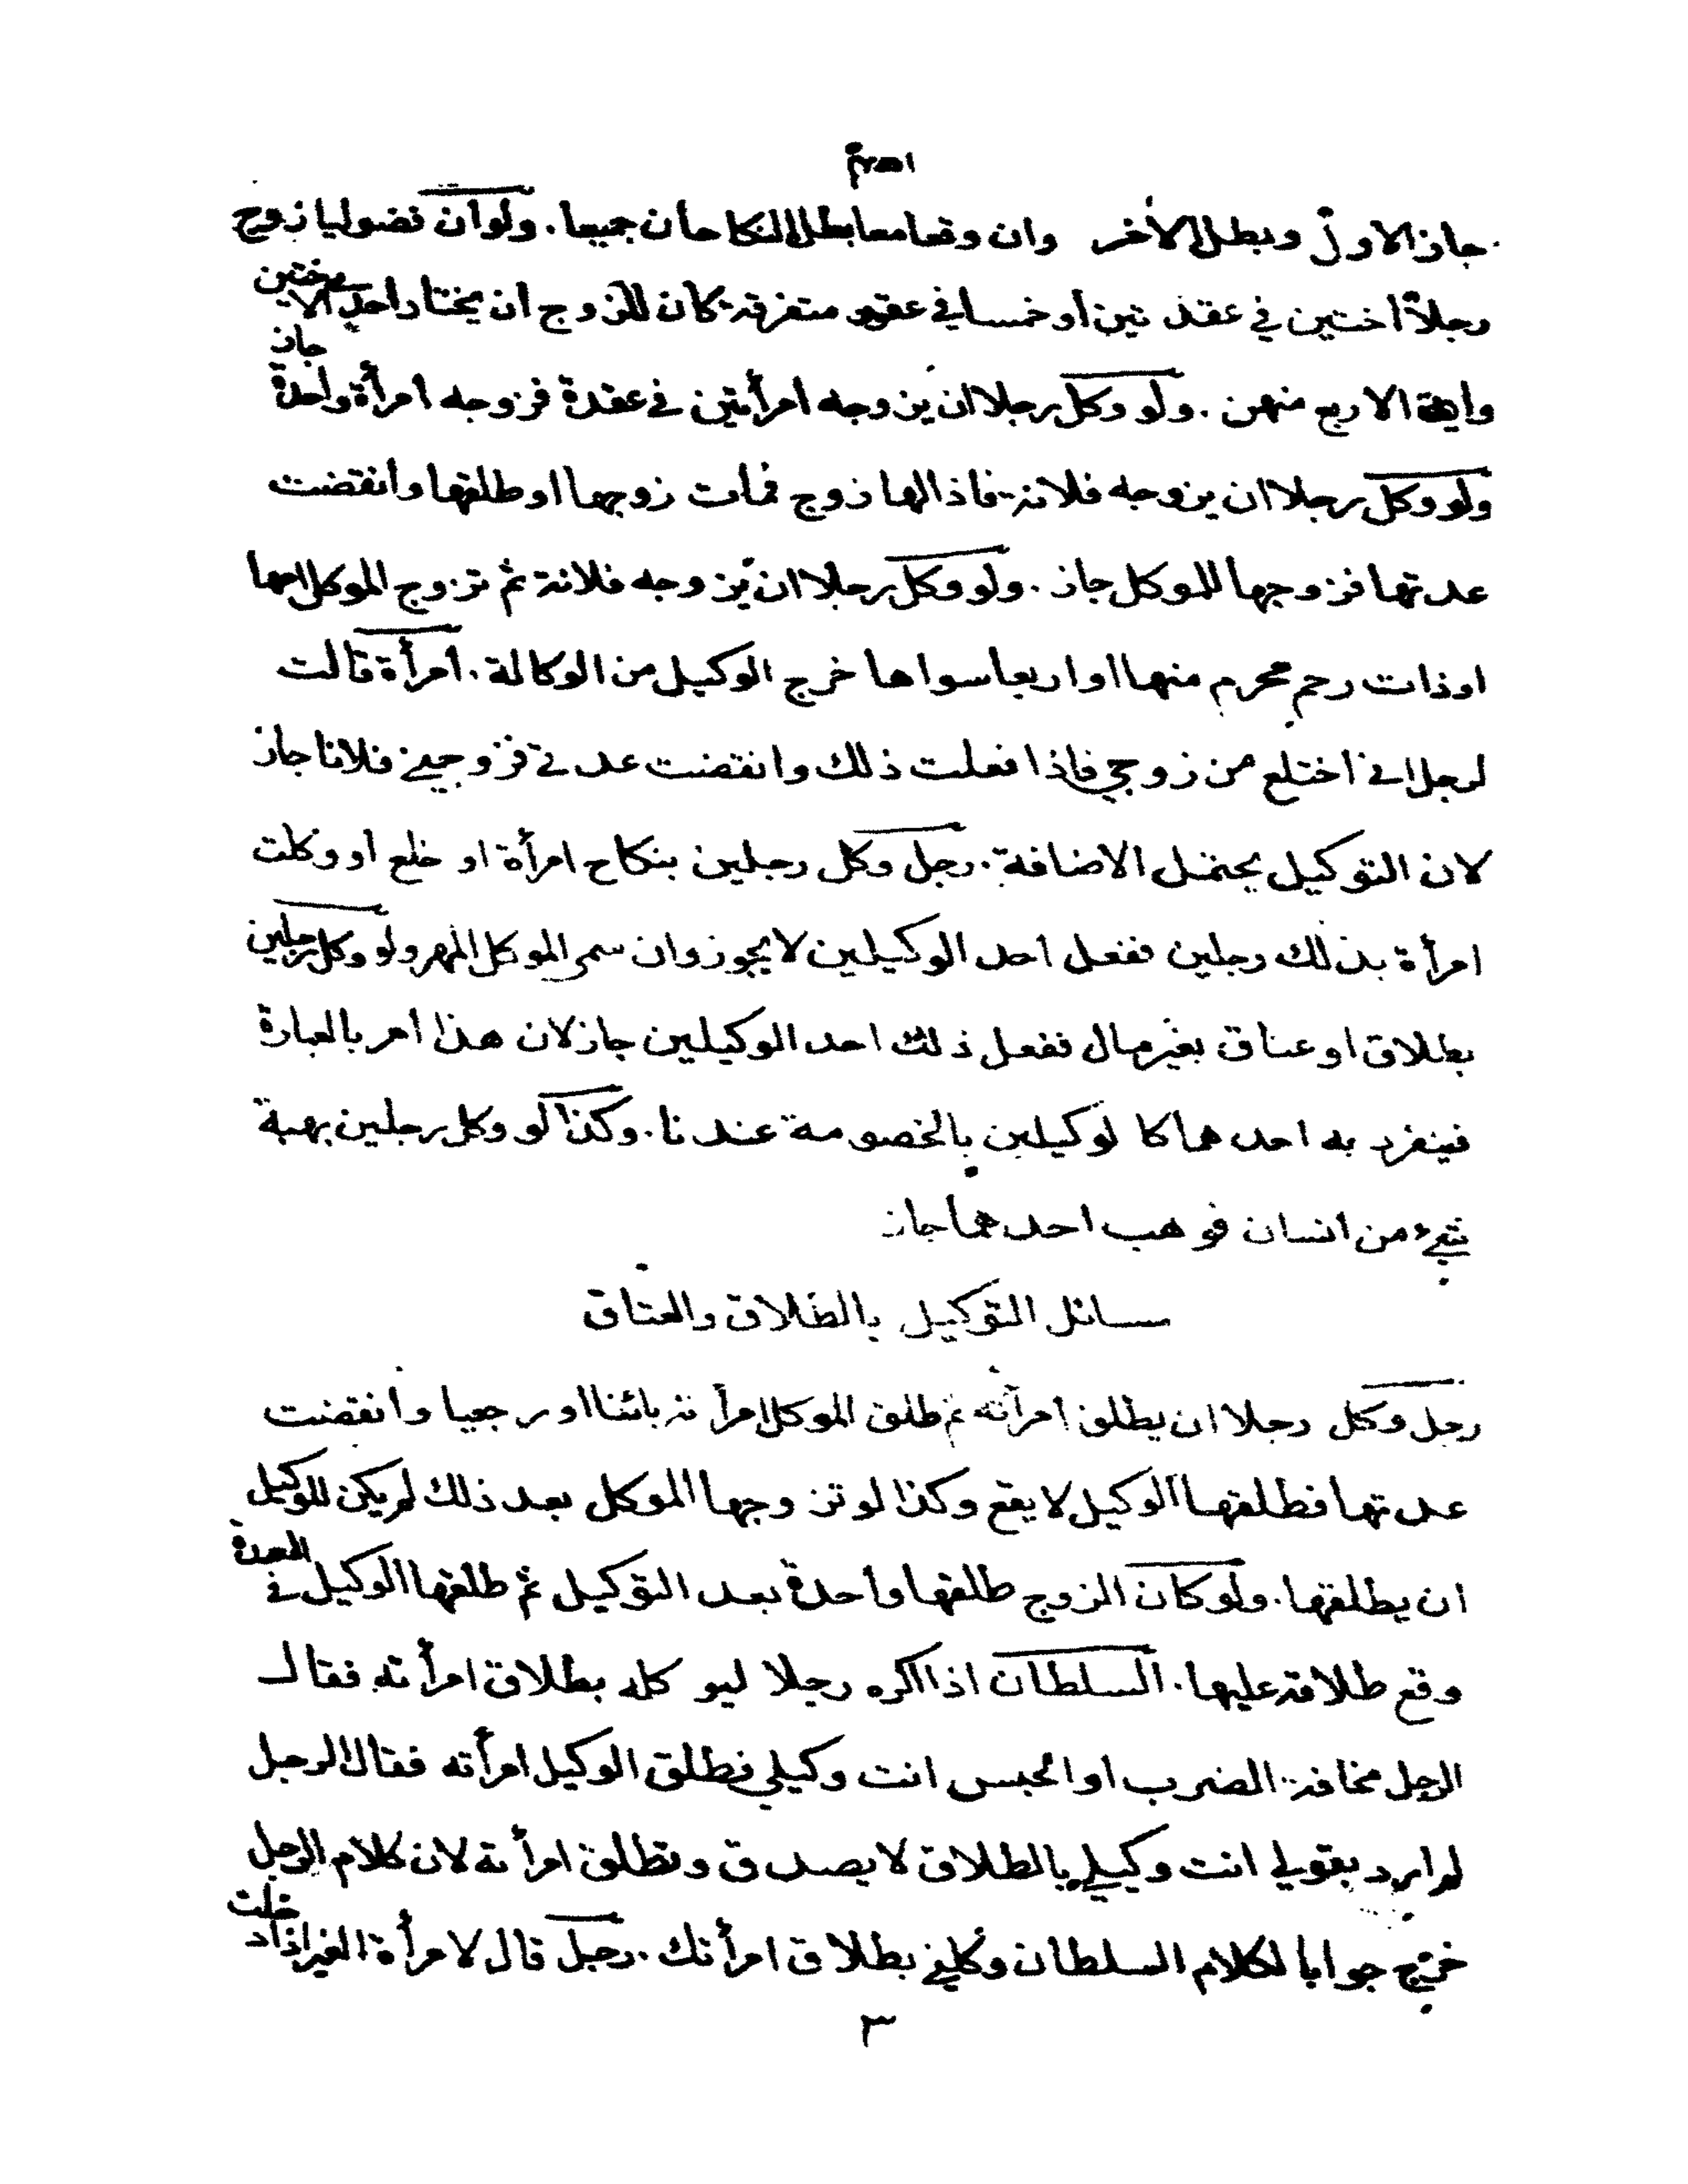 جاز الاول وبطل الاخر وان وقعا معا بطل النكاحان جميعا. ولو ان فضوليا زوج
رجلا اختين في عقدتين أو خمسا في عقود متفرقة كان للزوج ان يختار احدى الاختين
واية الاربع منهن. ولو وكل رجلا ان يزوجه امرأتين في عقدة فزوجه امرأة واحدة جاز
ولو وكل رجلا ان يزوجه فلانة فاذا لها زوج فمات زوجها او طلقها وانقضت
عدتها فزوجها للموكل جاز. ولو وكل رجلا ان يزوجه فلانة ثم تزوج الموكل امها
او ذات رحم محرم منها او اربعا سواها خرج الوكيل من الوكالة. امرأة قالت
لرجل اني اختلع من زوجي فاذا فعلت ذلك وانقضت عدتي فزوجيني فلانا جاز
لان التوكيل يحتمل الاضافة. رجل وكل رجلين بنكاح امرأة او خلع او وكلت
امرأة بذلك رجلين ففعل احد الوكيلين لا يجوز وان سمى الموكل المهر ولو وكل رجلين
بطلاق او عتاق بغير مال ففعل ذلك احد الوكيلين جاز لان هذا امر بالعبارة
فينفرد به احدهما كا لوكيلين بالخصومة عندنا. وكذا لو وكل رجلين بهبة
شيء من انسان فوهب احدهما جاز
مسائل التوكيل بالطلاق والعتاق
رجل وكل رجلا ان يطلق امرأته ثم طلق الموكل امرأته بائنا او رجعيا وانقضت
عدتها فطلقها الوكيل لا يقع وكذا لو تزوجها الموكل بعد ذلك لم يكن للوكيل
ان يطلقها. ولو كان الزوج طلقها واحدة بعد التوكيل ثم طلقها الوكيل في العدة
وقع طلاقه عليها. السلطان اذا اكره رجلا ليوكله بطلاق امرأته فقال
الرجل مخافة الضرب او الحبس انت وكيلي فطلق الوكيل امرأته فقال الرجل
لم ارد بقولي انت وكيلي بالطلاق لا يصدق وتطلق امرأته لان كلام الرجل
خرج جوابا لكلام السلطان وكلني بطلاق امرأتك. رجل قال لامرأة الغير اذا دخلت
٣